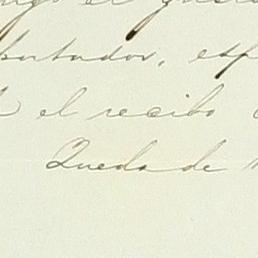 el gus
portador, esp
el recibo
Queda de